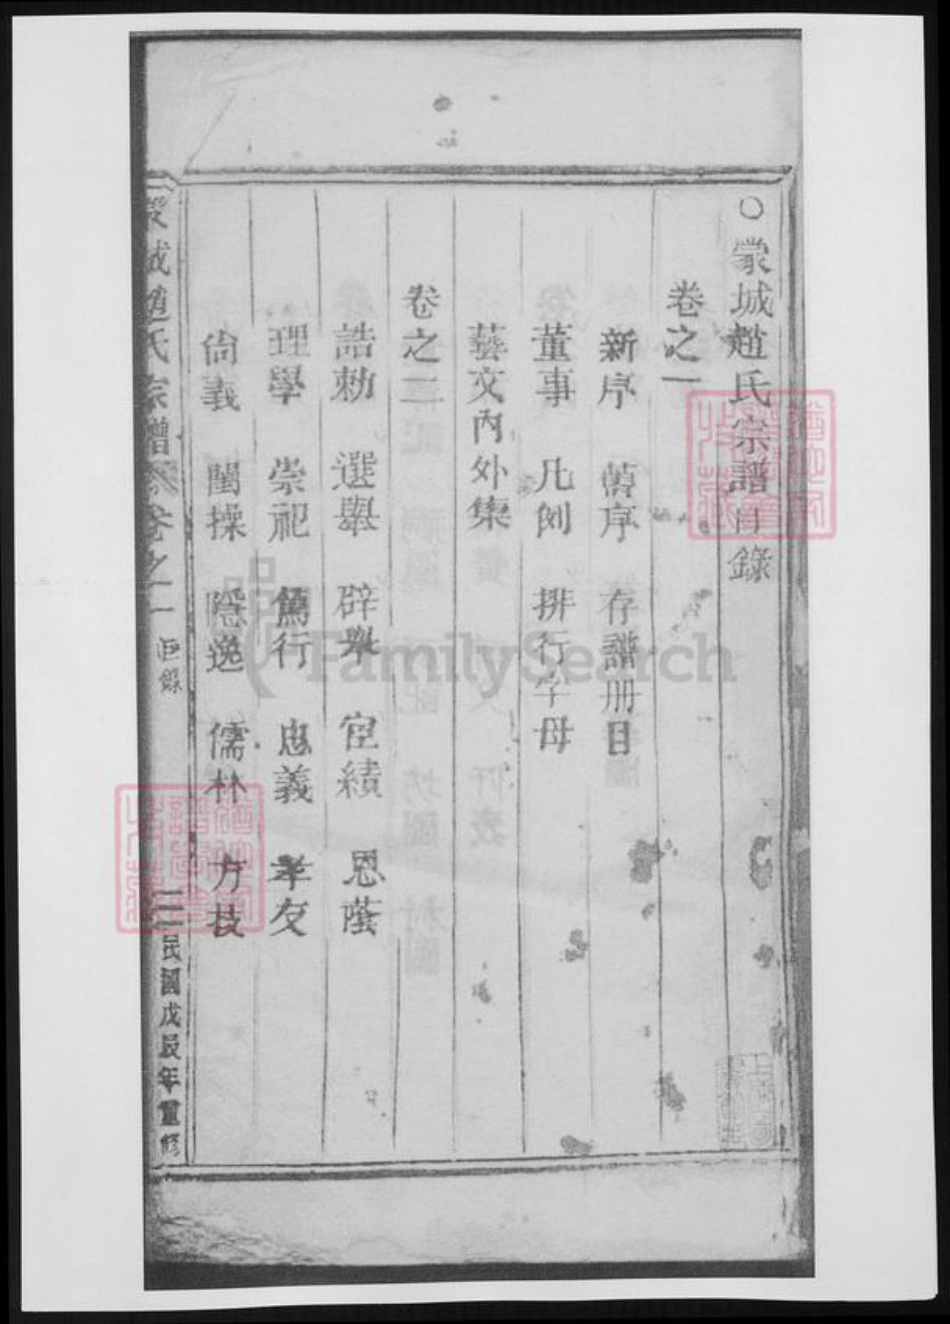 ○蒙城趙氏宗譜目錄
卷之一
新序 舊序 存譜册目
董事 凡例 排行字母
藝文內外集
卷之二
誥勅 選舉 辟舉 宦績 恩蔭
理學 崇祀 篤行 忠義 孝友
尙義 閨操 隱逸 儒林 方技
城趙氏宗譜 卷之一 目錄 二 民國戊辰年重修
FamilySearch